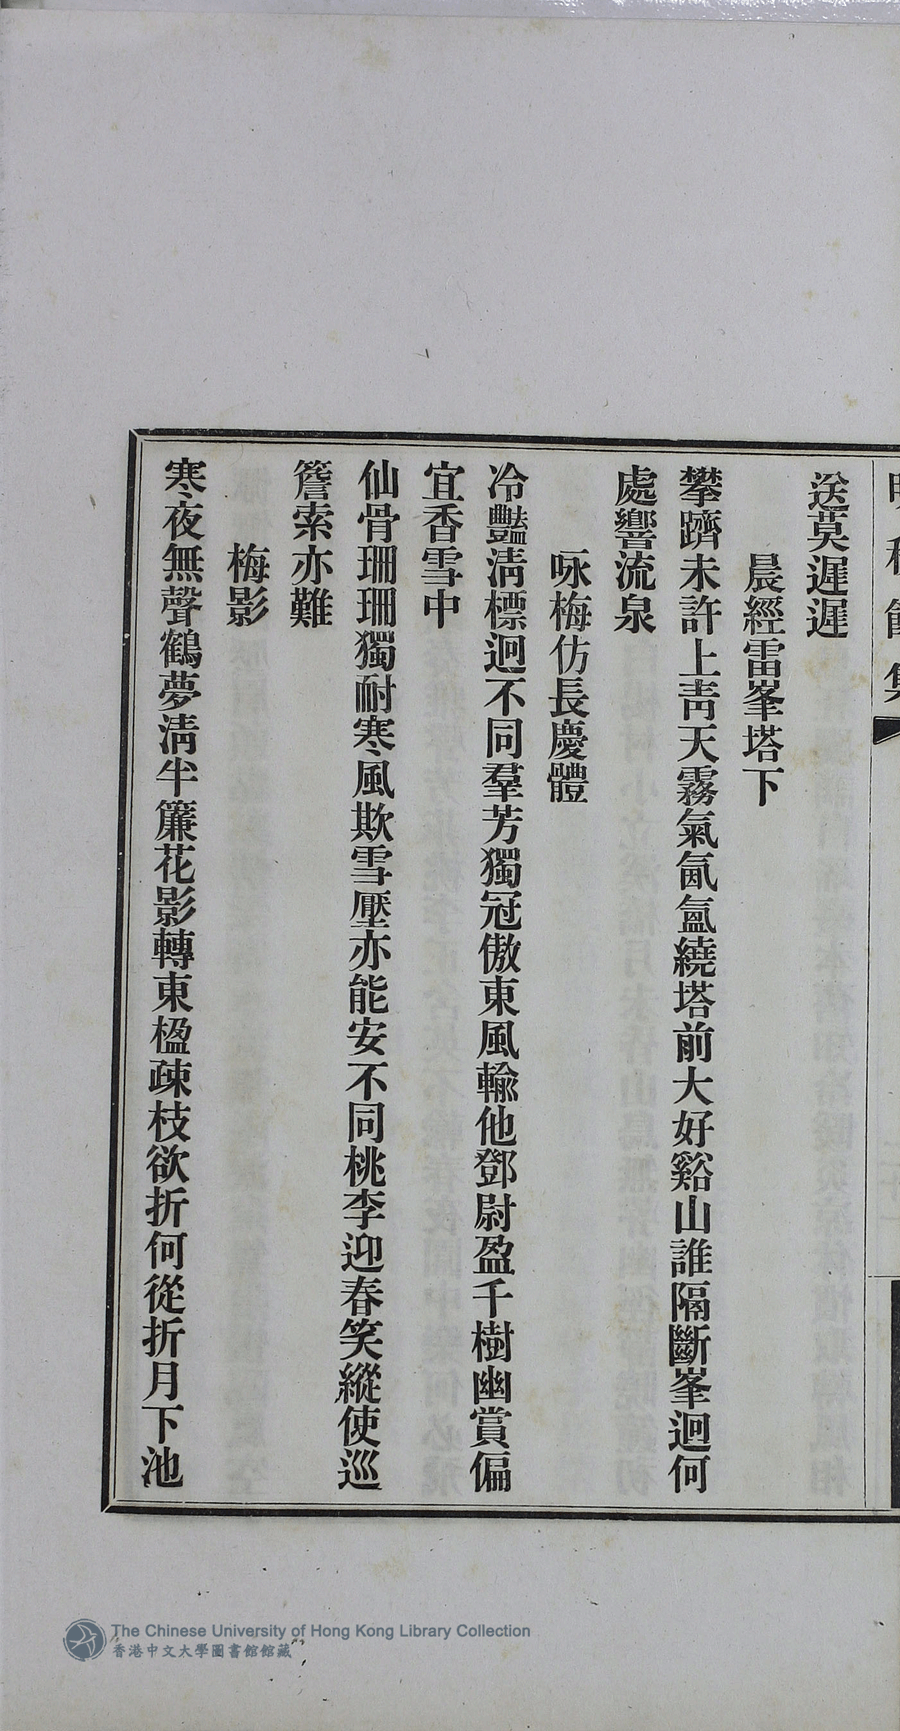 送莫遲遲
晨經雷峯塔下
攀躋未許上靑天霧氣氤氳繞塔前大好谿山誰隔斷峯迴何
處響流泉
咏梅仿長慶體
冷豔淸標迥不同羣芳獨冠傲東風輸他鄧尉盈千樹幽賞偏
宜香雪中
仙骨珊珊獨耐寒風欺雪壓亦能安不同桃李迎春笑縱使巡
簷索亦難
梅影
寒夜無聲鶴夢淸半簾花影轉東楹疎枝欲折何從折月下池
The Chinese University of Hong Kong Library Collection
香港中文大學圖書館館藏